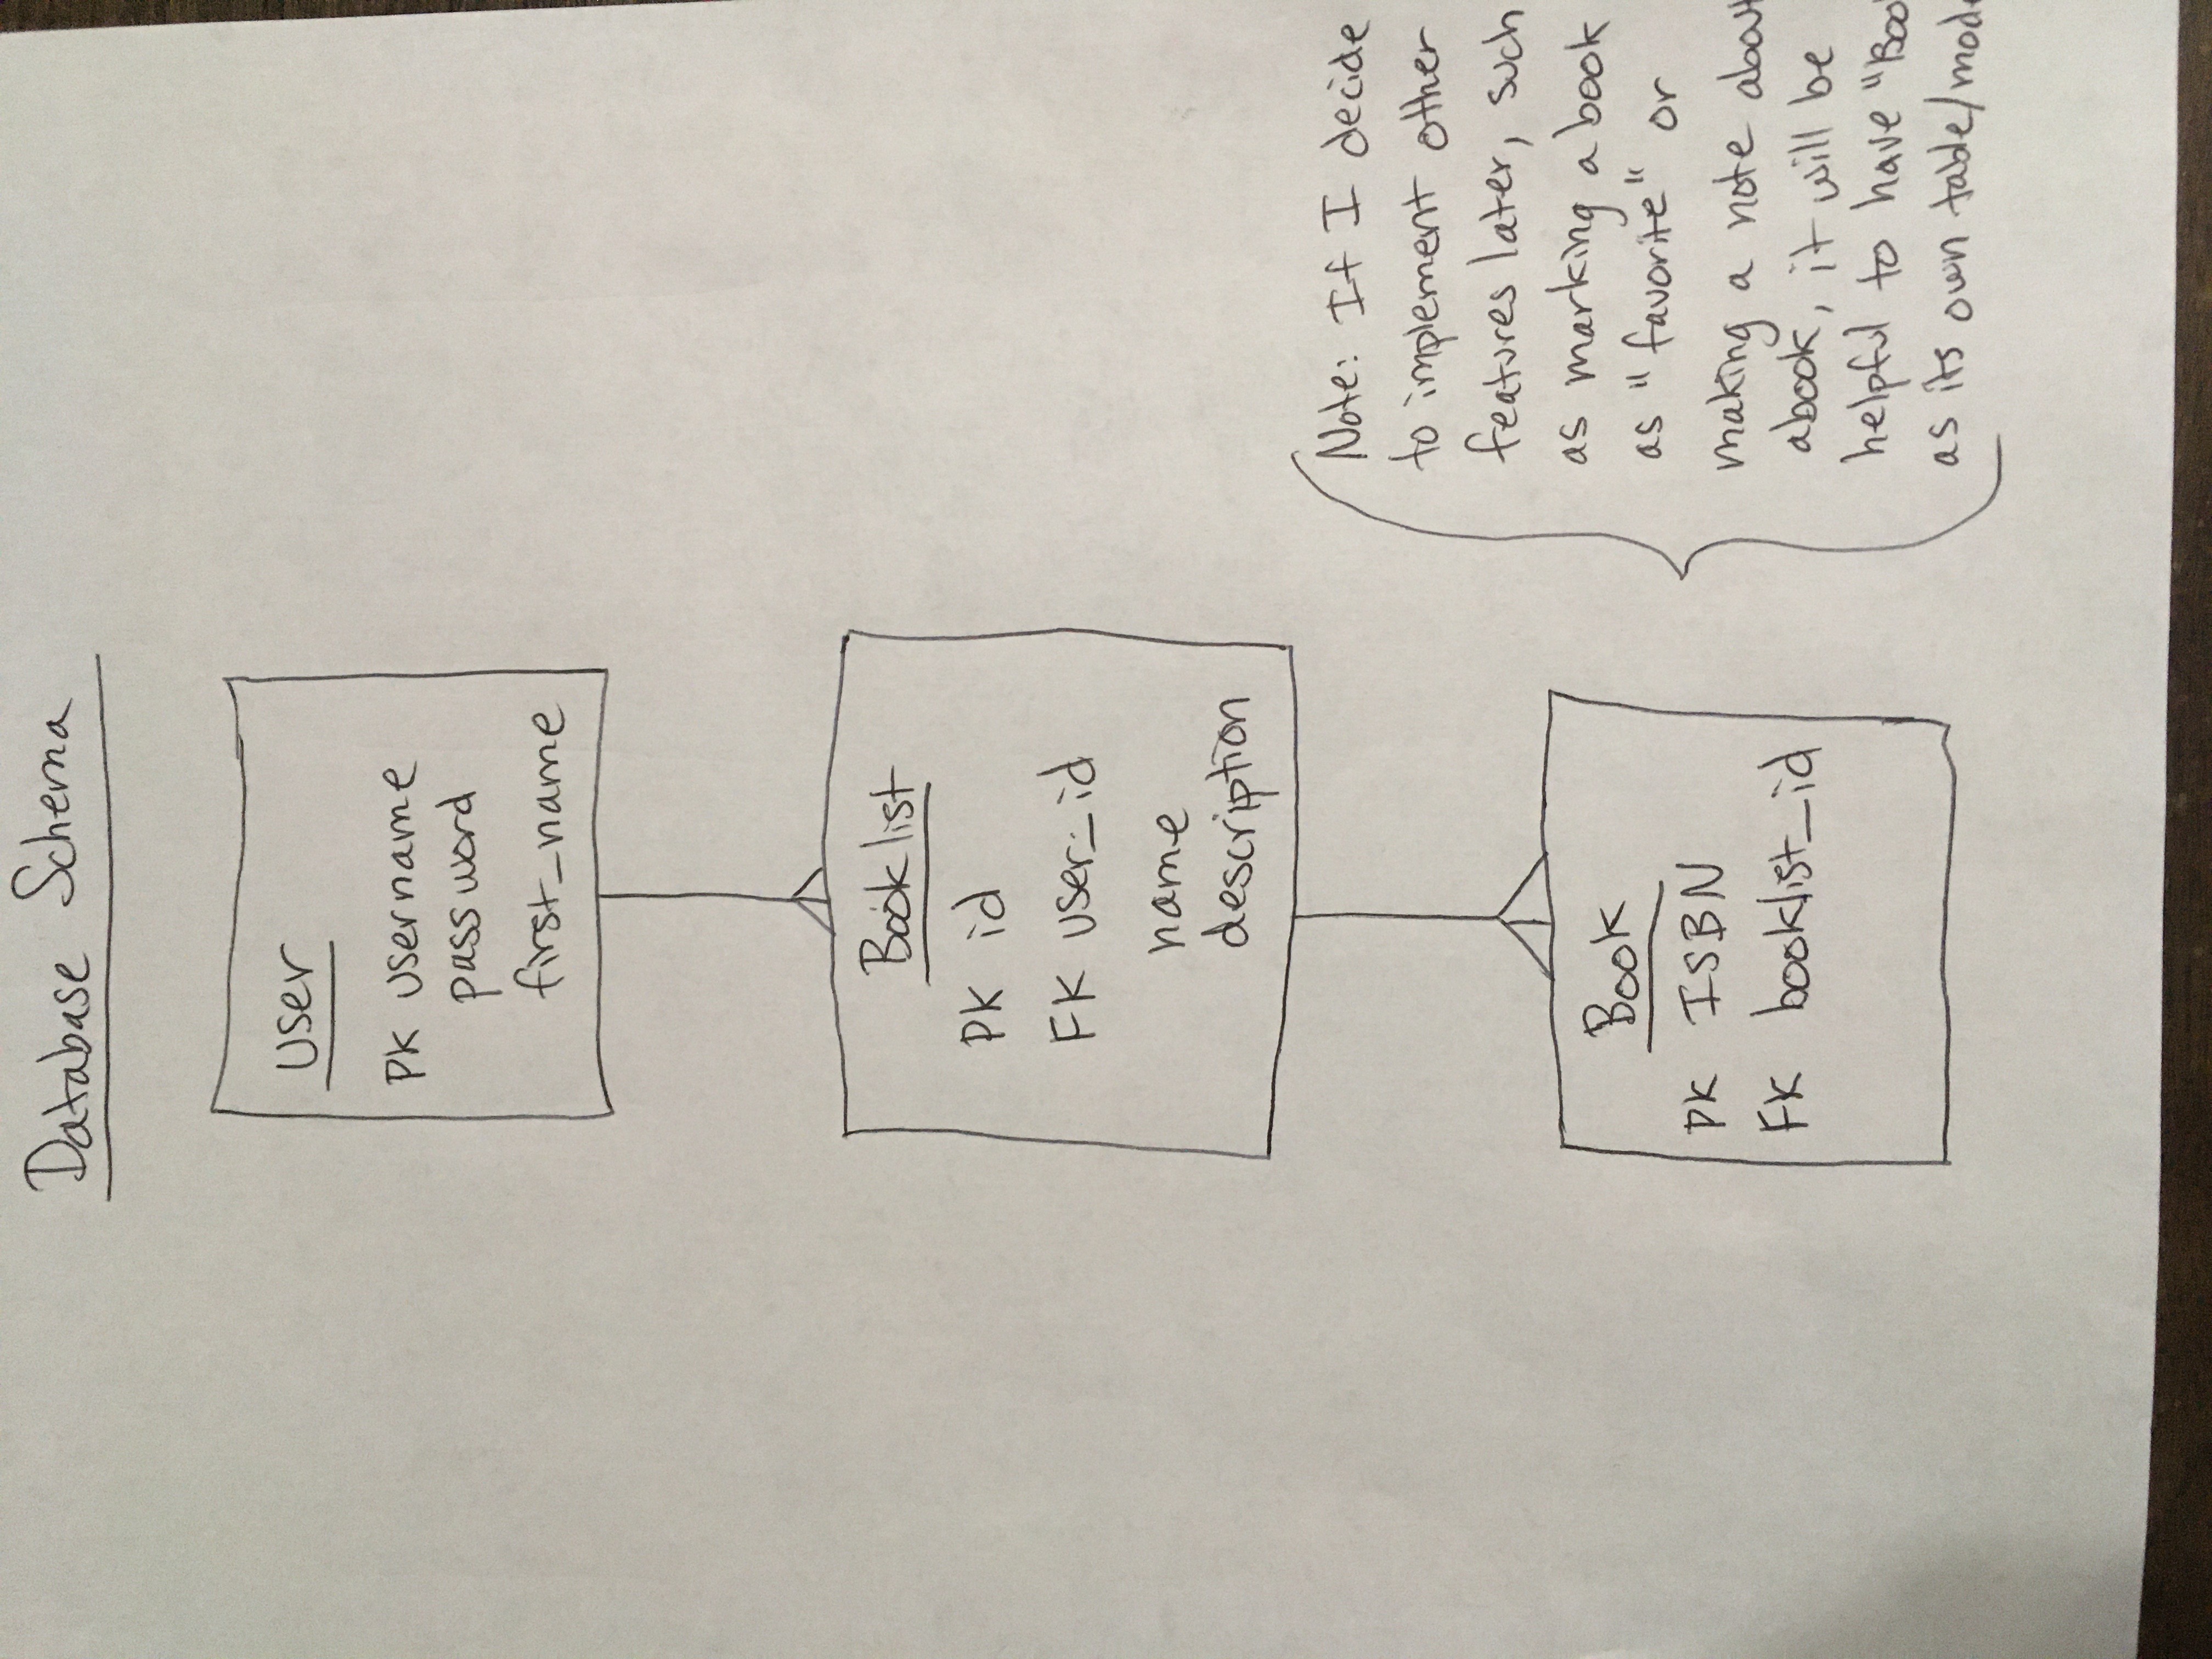 Database Schema
User
PK username
password
first_name
Booklist
PK id
FK user_id
name
description
Book
PK ISBN
FK booklist_id
Note: If I decide
to implement other
features later, such
as marking a book
as "favorite" or
making a note about
a book, it will be
helpful to have "Boo
as its own table/mod